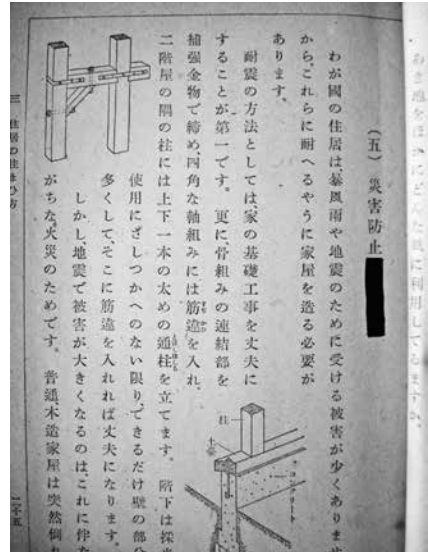 あき地をほかにどんな風に利用してゐますか。
（五） 災害防止
わが國の住居は、暴風雨や地震のために受ける被害が少くありませ
から、これらに耐へるやうに家屋を造る必要が
あります。
耐震の方法としては、家の基礎工事を丈夫に
することが第一です。更に、骨組みの連結部を
補強金物で締め、四角な軸組みには筋違を入れ、
二階屋の隅の柱には上下一本の太めの通柱を立てます。階下は採
使用にさしつかへのない限り、できるだけ壁の部分
多くして、そこに筋違を入れれば丈夫になります。
しかし、地震で被害が大きくなるのは、これに伴な
がちな火災のためです。普通木造家屋は突然倒れ
柱
土臺
コンクリート
三 住居の住まひ方
二十五